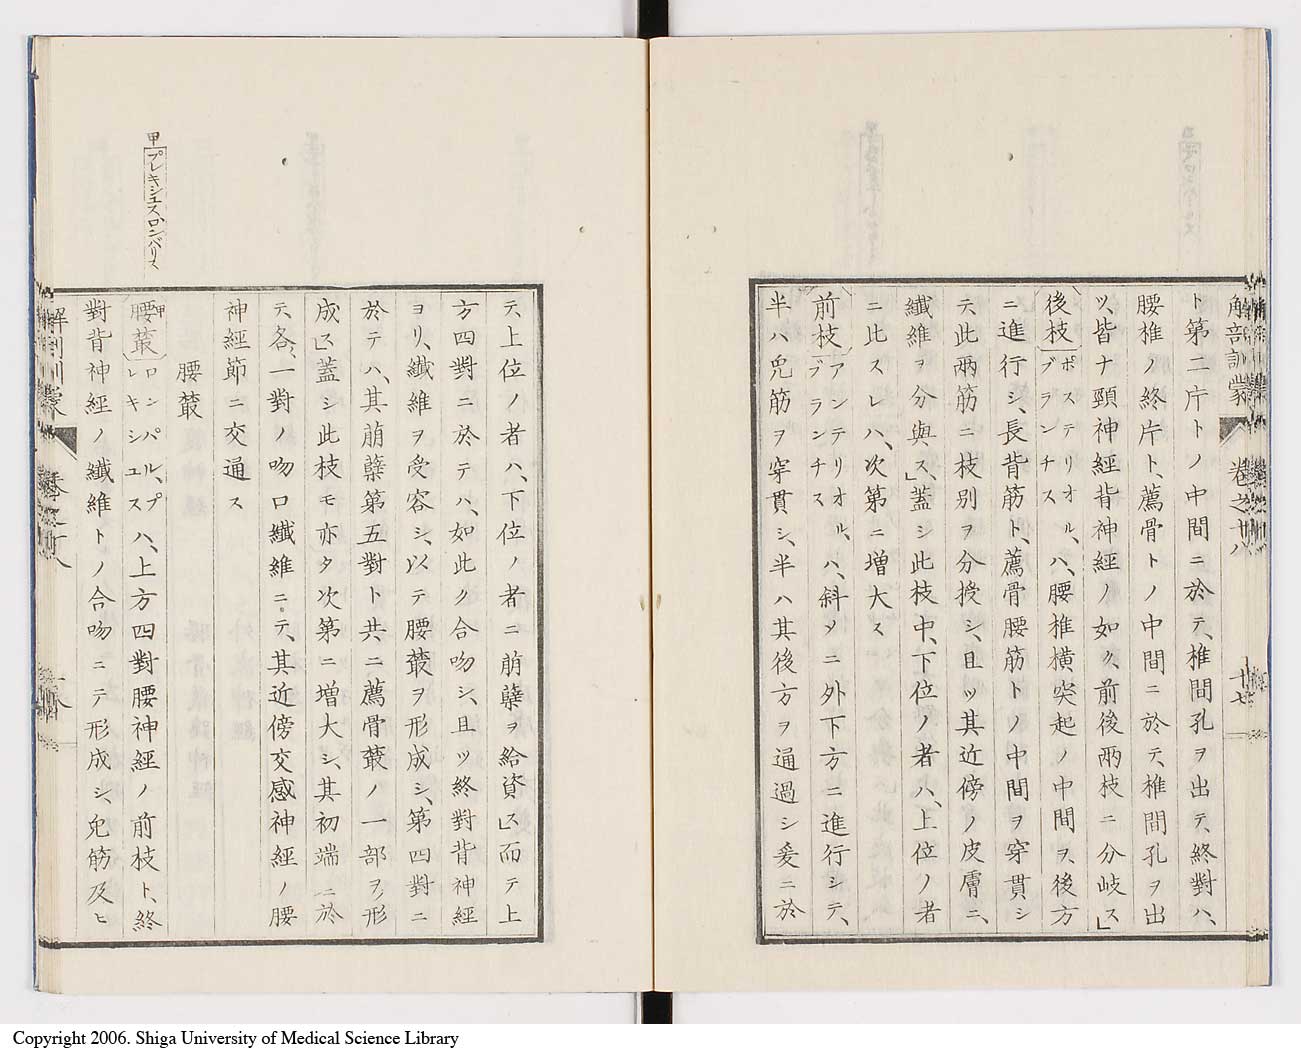 解剖訓蒙 卷之十八 十七
ト第二片トノ中間ニ於テ、椎間孔ヲ出テ、終對ハ、
腰椎ノ終片ト、薦骨トノ中間ニ於テ、椎間孔ヲ出
ツ、皆ナ頸神經背神經ノ如ク、前後兩枝ニ分岐ス」
後枝「ポステリオル、ブランチス」ハ、腰椎橫突起ノ中間ヲ、後方
ニ進行シ、長背筋ト、薦骨腰筋トノ中間ヲ穿貫シ
テ此兩筋ニ枝別ヲ分授シ、且ツ其近傍ノ皮膚ニ、
纎維ヲ分與ス、」蓋シ此枝中、下位ノ者ハ、上位ノ者
ニ比スレハ、次第ニ增大ス
前枝「アンテリオル、ブランチス」ハ、斜メニ外下方ニ進行シテ、
半ハ兠筋ヲ穿貫シ、半ハ其後方ヲ通過シ爰ニ於
テ上位ノ者ハ、下位ノ者ニ萠蘖ヲ給資ス」而テ上
方四對ニ於テハ、如此ク合吻シ、且ツ終對背神經
ヨリ、纎維ヲ受容シ、以テ腰叢ヲ形成シ、第四對ニ
於テハ、其萠蘖第五對ト共ニ薦骨叢ノ一部ヲ形
成ス」蓋シ此枝モ亦タ次第ニ增大シ、其初端ニ於
テ、各、一對ノ吻口纎維ニテ、其近傍交感神經ノ腰
神經節ニ交通ス
腰叢
甲プレキシユスロンバリス
甲腰叢「ロンバル、プレキシユス」ハ、上方四對腰神經ノ前枝ト、終
對背神經ノ纎維トノ合吻ニテ形成シ、兠筋及ヒ